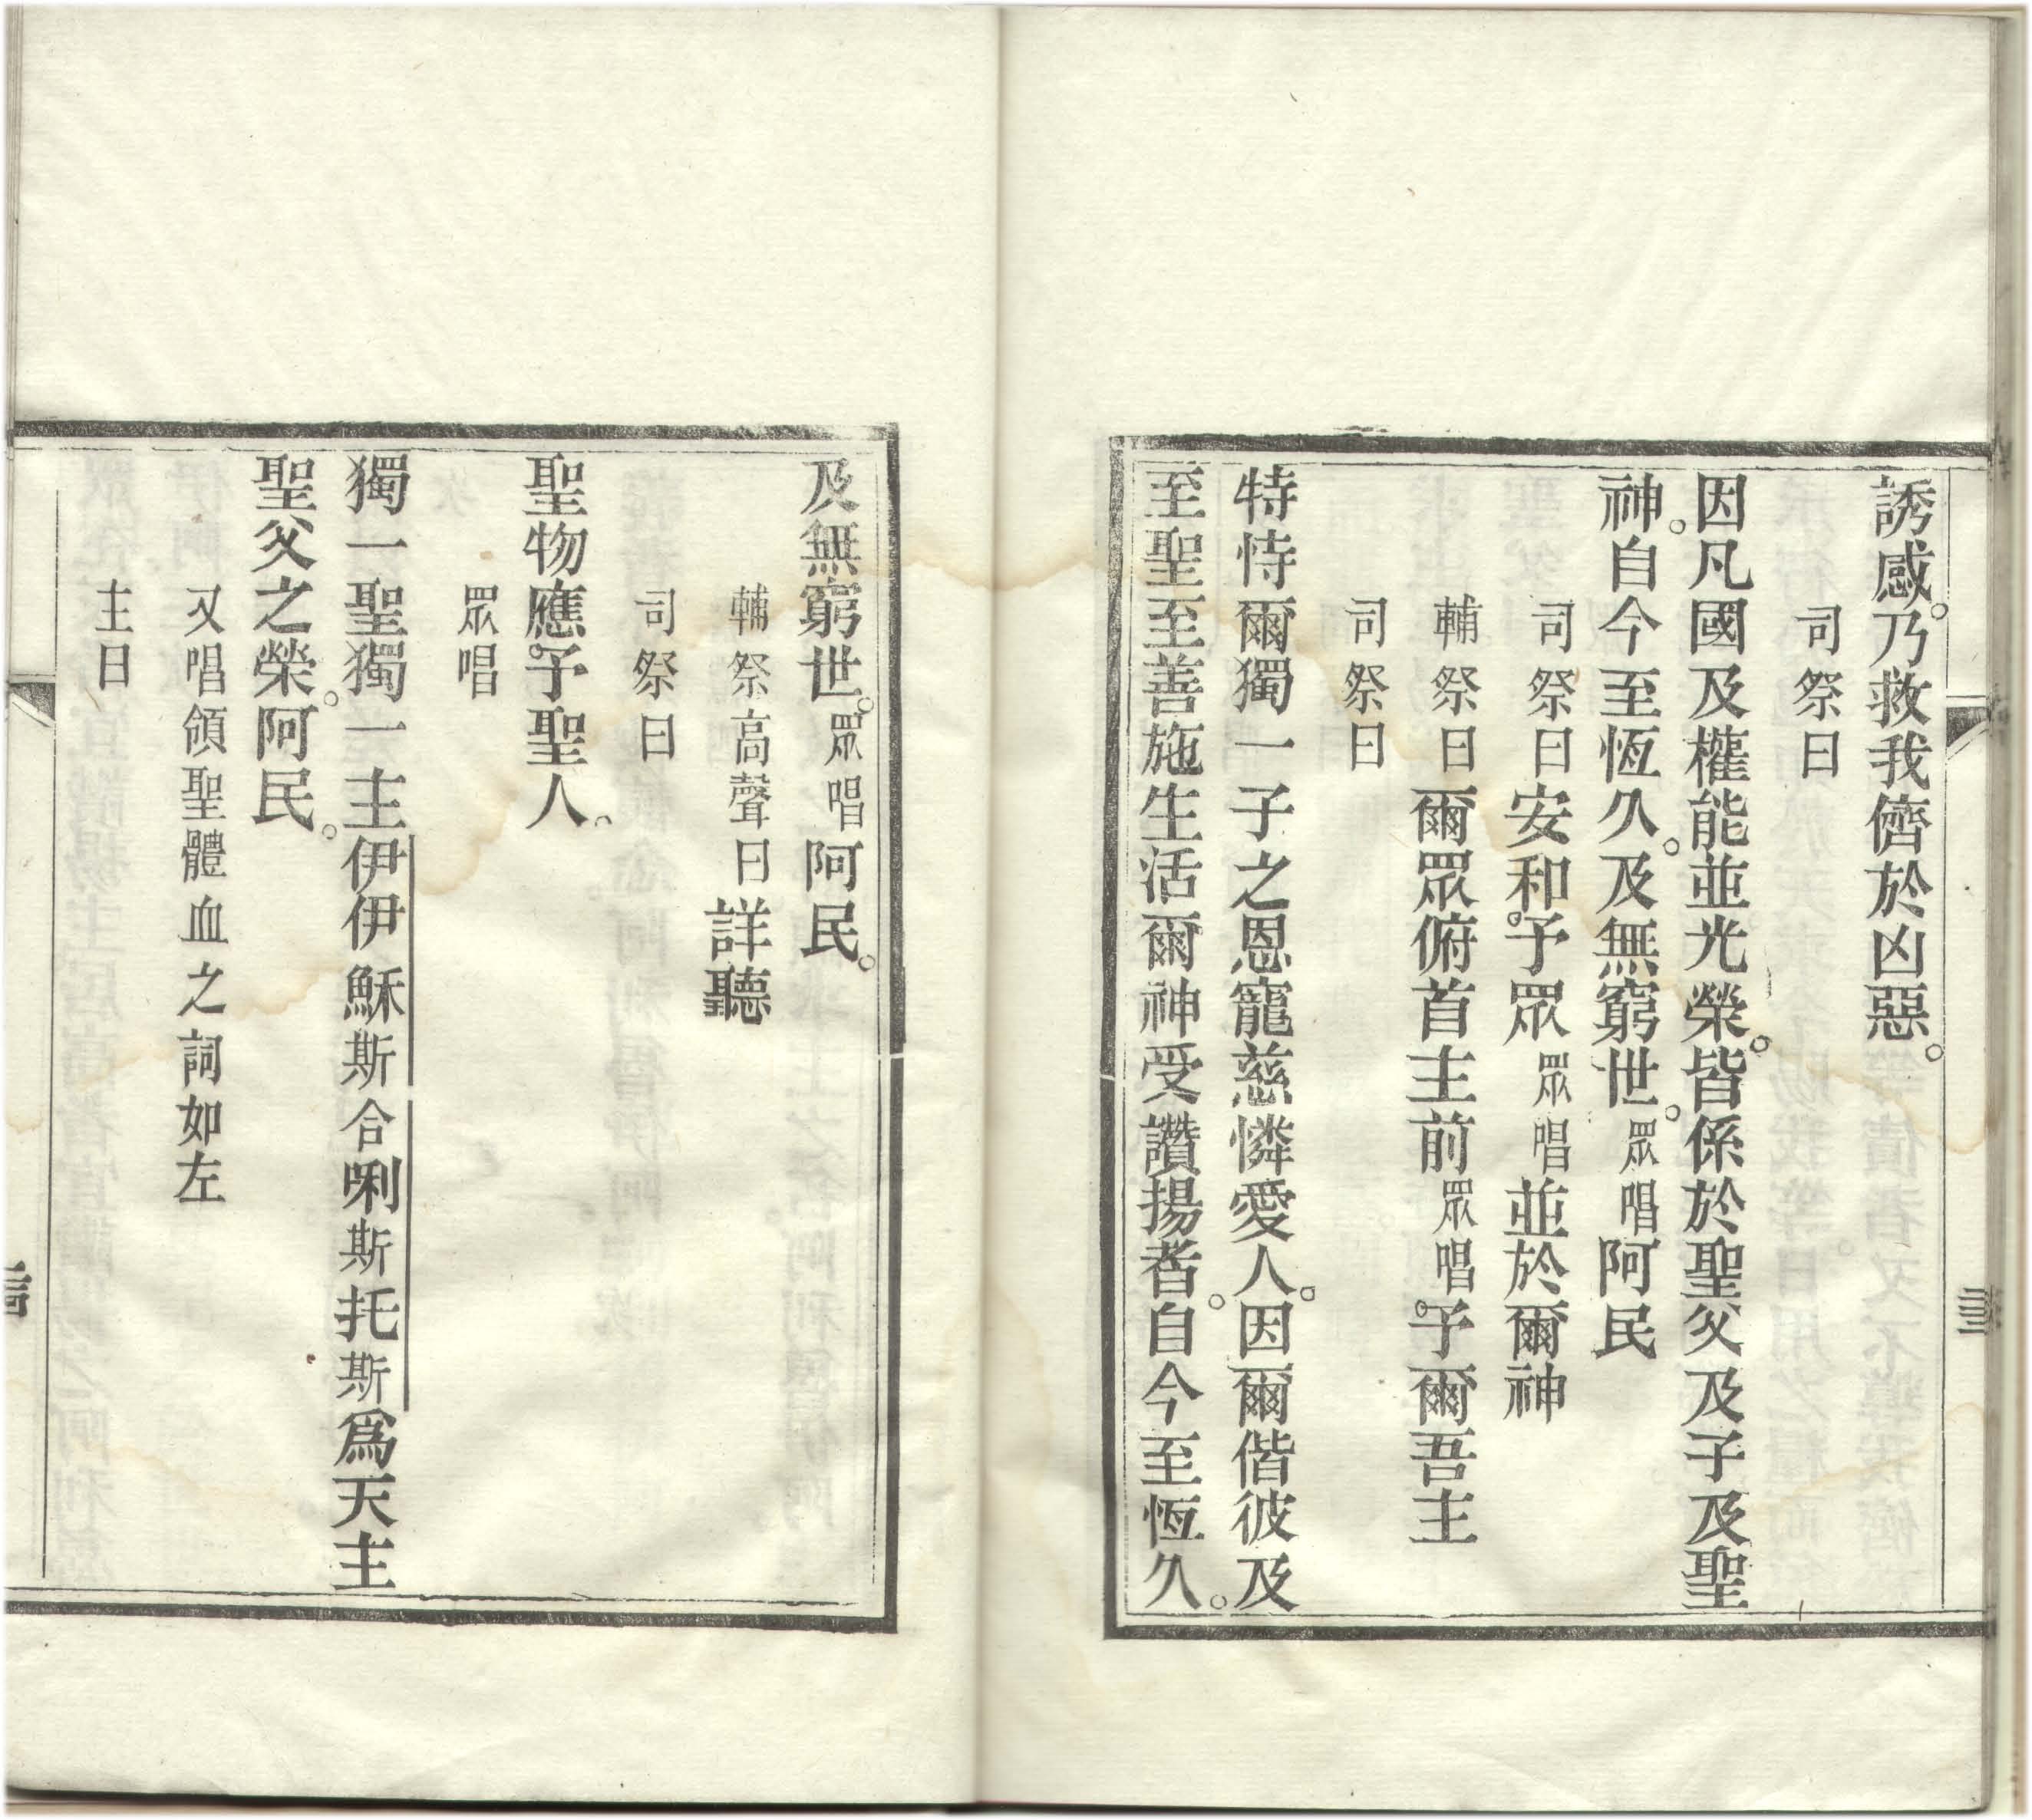 誘感。乃救我儕於凶惡。
司祭曰
因凡國及權能並光榮。皆係於聖父及子及聖
神。自今至恆久。及無窮世。眾唱阿民
司祭曰安和。予眾眾唱並於爾神
輔祭曰爾眾俯首主前眾唱。予爾吾主
司祭曰
特恃爾獨一子之恩寵慈憐愛人。因爾偕彼及
至聖至善施生活爾神受讚揚者。自今至恆久。
及無窮世。眾唱阿民。
輔祭高聲曰詳聽
司祭曰
聖物應。予聖人。
眾唱
獨一聖獨一主伊伊穌斯合唎斯托斯爲天主
聖父之榮。阿民。
又唱領聖體血之詞如左
主日